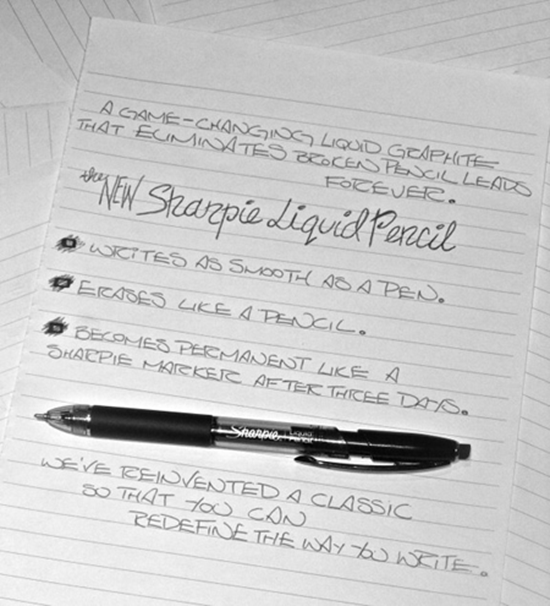 A GAME-CHANGING LIQUID GRAPHITE
THAT ELIMINATES BROKEN PENCIL LEADS
FOREVER.
the NEW Sharpie Liquid Pencil
WRITES AS SMOOTH AS A PEN.
ERASES LIKE A PENCIL.
BECOMES PERMANENT LIKE A
SHARPIE MARKER AFTER THREE DAYS.
Sharpie. LIQUID
PENCIL
WE'VE REINVENTED A CLASSIC
SO THAT YOU CAN
REDEFINE THE WAY YOU WRITE.